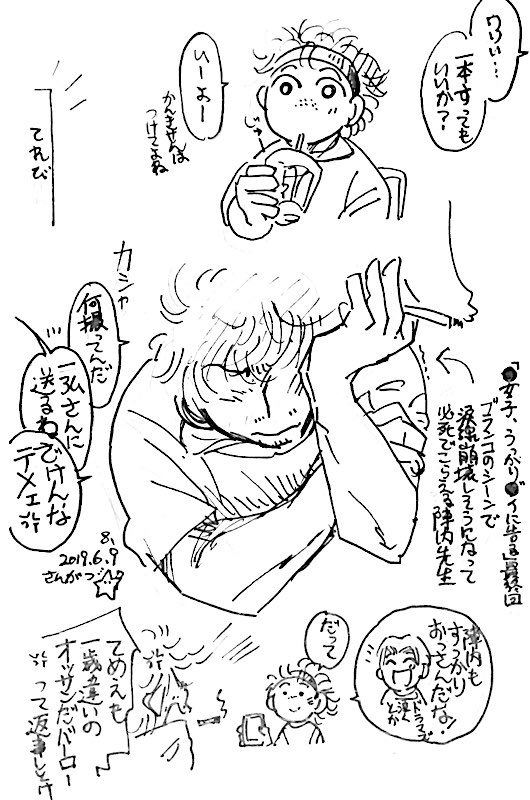 ううぃ…
一本すっても
いいか？
いーよー
かんきせんは
つけてよね
じゅー
てれび
カシャ
何撮ってんだ
一弘さんに
送るね
ざけんな
テメェ
「●女子、うっかり●イに告る」最終回
ブランコのシーンで
涙線崩壊しそうになって
必死でこらえる陣内先生
8,
2019.6.9
さんがつ
陣内も
すっかり
おっさんだな！
ドラマで
涙
とか
だって
てめえも
一歳違いの
オッサンだバーロー
って返事しとけ